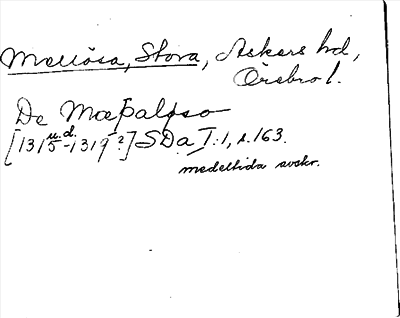 Mellösa, Stora, Askers hd,
Örebro l.
De Mæþaløso
[1315 u.d. -1319?] SDa I:1, s. 163.
medeltida avskr.